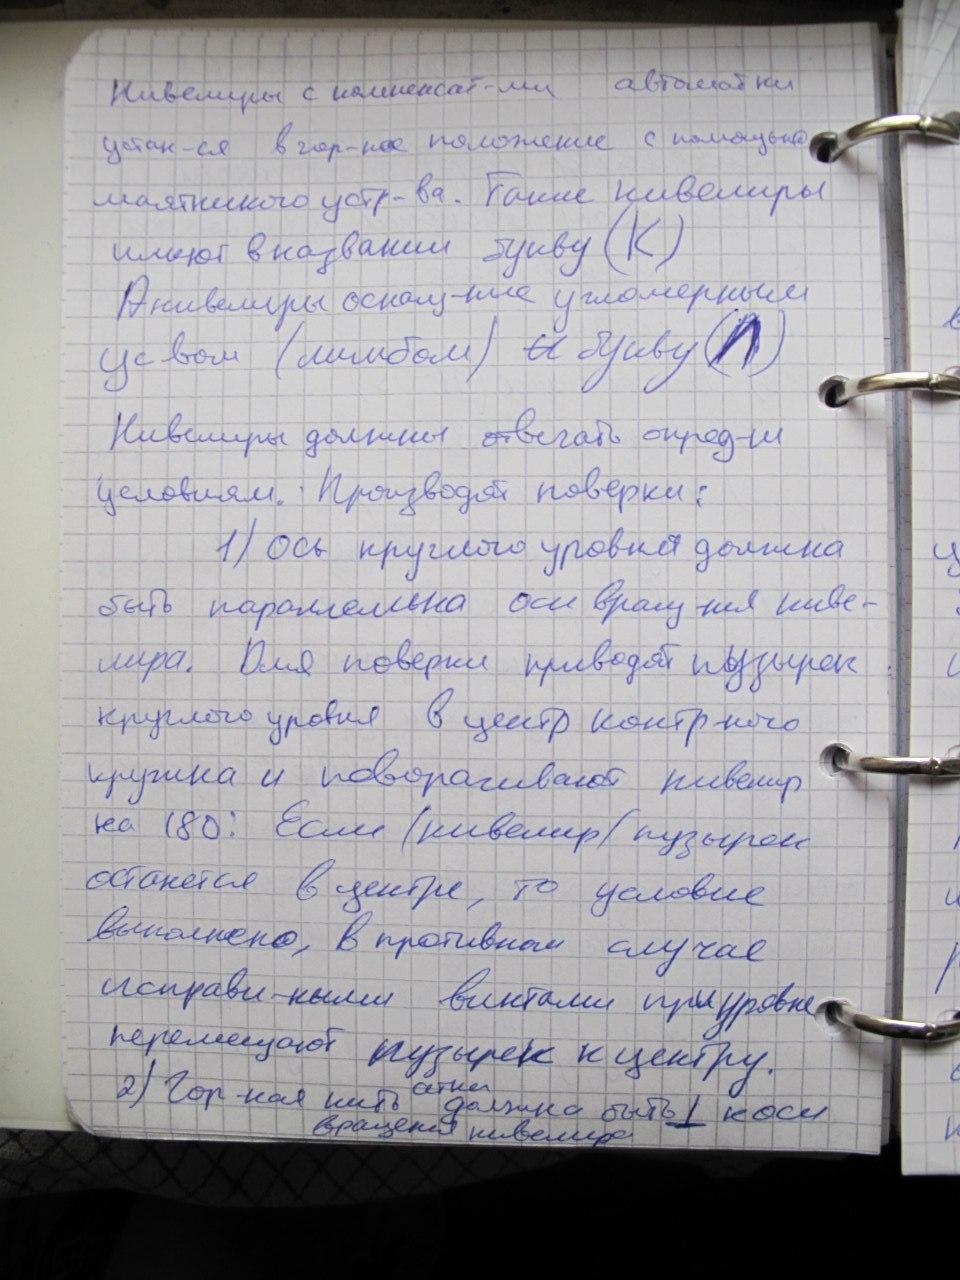 Нивелиры с компенсат-ми автоматки
устан-ся в гор-ное положение с помощью
маятникого устр-ва. Такие нивелиры
имеют в названии букву (К)
А нивелиры оснащ-ние угломерным
ус вом (лимбом) букву (Л)
Нивелиры должны отвечать опред-м
условиям. Производят поверки:
1) Ось круглого уровня должна
быть параллельна оси вращ-ния ниве-
лира. Для поверки приводят пузырек
круглого уровня в центр контр-ного
кружка и поворачивают нивелир
на 180: Если (нивелир) пузырек
останется в центре, то условие
выполнено, в противном случае
исправи-ными винтами при уровне
перемещают пузырек к центру.
2) Гор-ная нить сетки должна быть ⊥ к оси
вращения нивелира